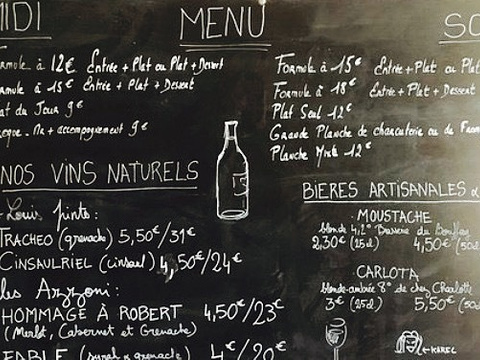 IDI
MENU
SO
Formule à 12€ Entrée + Plat ou Plat + Dessert
Formule à 15€ Entrée + Plat + Dessert
Plat du Jour 9€
+ accompagnement 9€
Formule à 15€ Entrée + Plat ou Plat
Formule à 18€ Entrée + Plat + Dessert
Plat Seul 12€
Grande Planche de charcuterie ou de From
Planche Mixte 12€
NOS VINS NATURELS
Louis Pinte:
TRACHEO (grenache) 5,50€/31€
CINSAULRIEL (cinsaul) 4,50€/24€
les Azzoni:
HOMMAGE À ROBERT 4,50€/23€
(Merlot, Cabernet et Grenache)
FABLE (syrah & grenache) 4€/20€
BIERES ARTISANALES
MOUSTACHE
blonde 4,2° Brasserie du Bouffay
2,30€ (25cl) 4,50€ (50cl
CARLOTA
blonde-ambrée 8° de chez Charlotte
3€ (25cl) 5,50€ (50
← KAREL